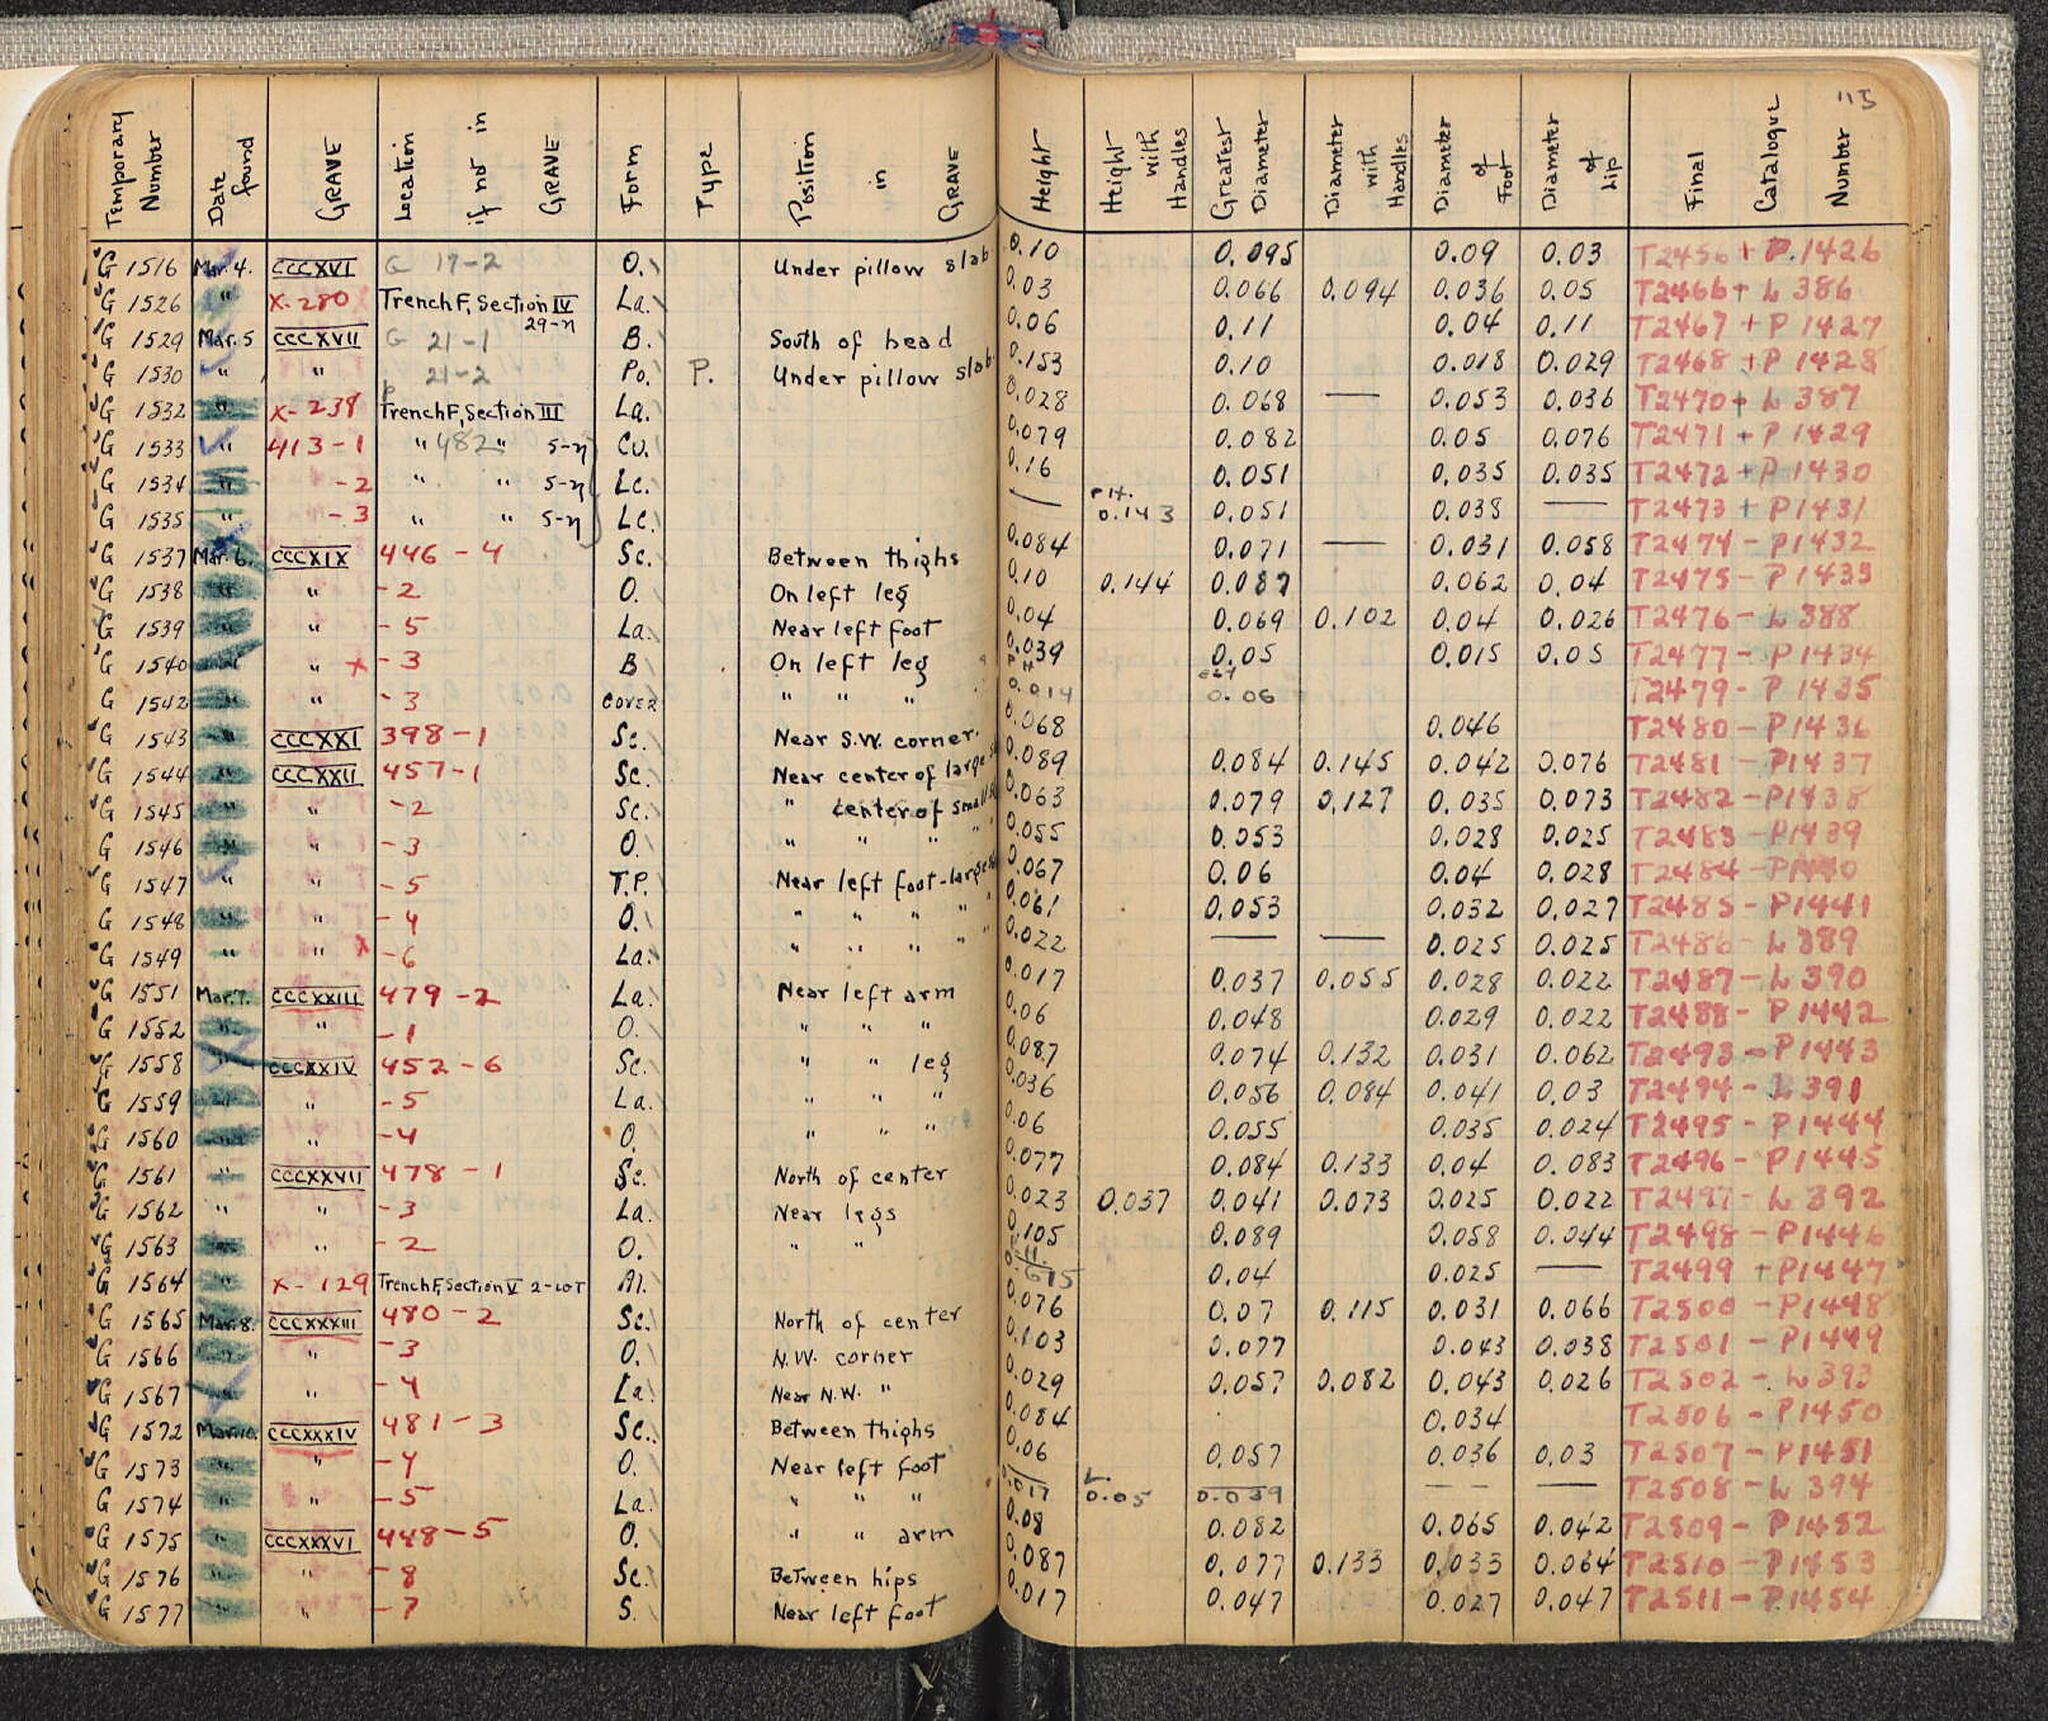 115
Temporary Number | Date found | GRAVE | Location if not in GRAVE | Form | Type | Position in GRAVE | Height | Height with Handles | Greatest Diameter | Diameter with Handles | Diameter of Foot | Diameter of Lip | Final Catalogue Number
G 1516 Mar. 4. CCCXVI G 17-2 O. Under pillow slab 0.10 0.095 0.09 0.03 T2456 + P.1426
G 1526 " X-280 Trench F, Section IV 29-η La. 0.03 0.066 0.094 0.036 0.05 T2466 + L 386
G 1529 Mar. 5 CCCXVII G 21-1 B. South of head 0.06 0.11 0.04 0.11 T2467 + P 1427
G 1530 " " 21-2 Po. P. Under pillow slab 0.153 0.10 0.018 0.029 T2468 + P 1428
G 1532 " X-238 Trench F, Section III La. 0.028 0.068 — 0.053 0.036 T2470 + L 387
G 1533 " 413-1 " 482 " 5-η Cu. 0.079 0.082 0.05 0.076 T2471 + P 1429
G 1534 " -2 " " 5-η Lc. 0.16 0.051 0.035 0.035 T2472 + P 1430
G 1535 " -3 " " 5-η Lc. — PH. 0.143 0.051 0.038 — T2473 + P1431
G 1537 Mar. 6. CCCXIX 446-4 Sc. Between thighs 0.084 0.071 — 0.031 0.058 T2474 - P1432
G 1538 " " -2 O. On left leg 0.10 0.144 0.087 0.062 0.04 T2475 - P1433
G 1539 " " -5 La. Near left foot 0.04 0.069 0.102 0.04 0.026 T2476 - L 388
G 1540 " " X -3 B On left leg 0.039 0.05 0.015 0.05 T2477 - P1434
G 1542 " " -3 COVER " " " PH 0.014 est 0.06 T2479 - P 1435
G 1543 " CCCXXI 398-1 Sc. Near S.W. corner. 0.068 0.046 T2480 - P1436
G 1544 " CCCXXII 457-1 Sc. Near center of large 0.089 0.084 0.145 0.042 0.076 T2481 - P1437
G 1545 " " -2 Sc. " center of small 0.063 0.079 0.127 0.035 0.073 T2482 - P1438
G 1546 " " -3 O. " " " " 0.055 0.053 0.028 0.025 T2483 - P1439
G 1547 " " -5 T.P. Near left foot-large 0.067 0.06 0.04 0.028 T2484 - P1440
G 1548 " " -4 O. " " " " " 0.061 0.053 0.032 0.027 T2485 - P1441
G 1549 " " X -6 La. " " " " " 0.022 — — 0.025 0.025 T2486 - L 389
G 1551 Mar. 7. CCCXXIII 479-2 La. Near left arm 0.017 0.037 0.055 0.028 0.022 T2487 - L 390
G 1552 " " -1 O. " " " 0.06 0.048 0.029 0.022 T2488 - P1442
G 1558 " CCCXXIV 452-6 Sc. " " leg 0.087 0.074 0.132 0.031 0.062 T2493 - P1443
G 1559 " " -5 La. " " " 0.036 0.056 0.084 0.041 0.03 T2494 - L 391
G 1560 " " -4 O. " " " 0.06 0.055 0.035 0.024 T2495 - P1444
G 1561 " CCCXXVII 478-1 Sc. North of center 0.077 0.084 0.133 0.04 0.083 T2496 - P1445
G 1562 " " -3 La. Near legs 0.023 0.037 0.041 0.073 0.025 0.022 T2497 - L 392
G 1563 " " -2 O. " " 0.105 0.089 0.058 0.044 T2498 - P1446
G 1564 " X-129 Trench F, Section V 2-LOT Al. 0.04 0.025 — T2499 + P1447
G 1565 Mar. 8. CCCXXXIII 480-2 Sc. North of center 0.076 0.07 0.115 0.031 0.066 T2500 - P1448
G 1566 " " -3 O. N.W. corner 0.103 0.077 0.043 0.038 T2501 - P1449
G 1567 " " -4 La. Near N.W. " 0.029 0.057 0.082 0.043 0.026 T2502 - L 393
G 1572 Mar. 10. CCCXXXIV 481-3 Sc. Between thighs 0.084 0.034 T2506 - P1450
G 1573 " " -4 O. Near left foot 0.06 0.057 0.036 0.03 T2507 - P1451
G 1574 " " -5 La. " " " 0.017 L. 0.05 0.039 — — T2508 - L 394
G 1575 " CCCXXXVI 448-5 O. " " arm 0.08 0.082 0.065 0.042 T2509 - P1452
G 1576 " " -8 Sc. Between hips 0.087 0.077 0.133 0.033 0.064 T2510 - P1453
G 1577 " " -7 S. Near left foot 0.017 0.047 0.027 0.047 T2511 - P.1454